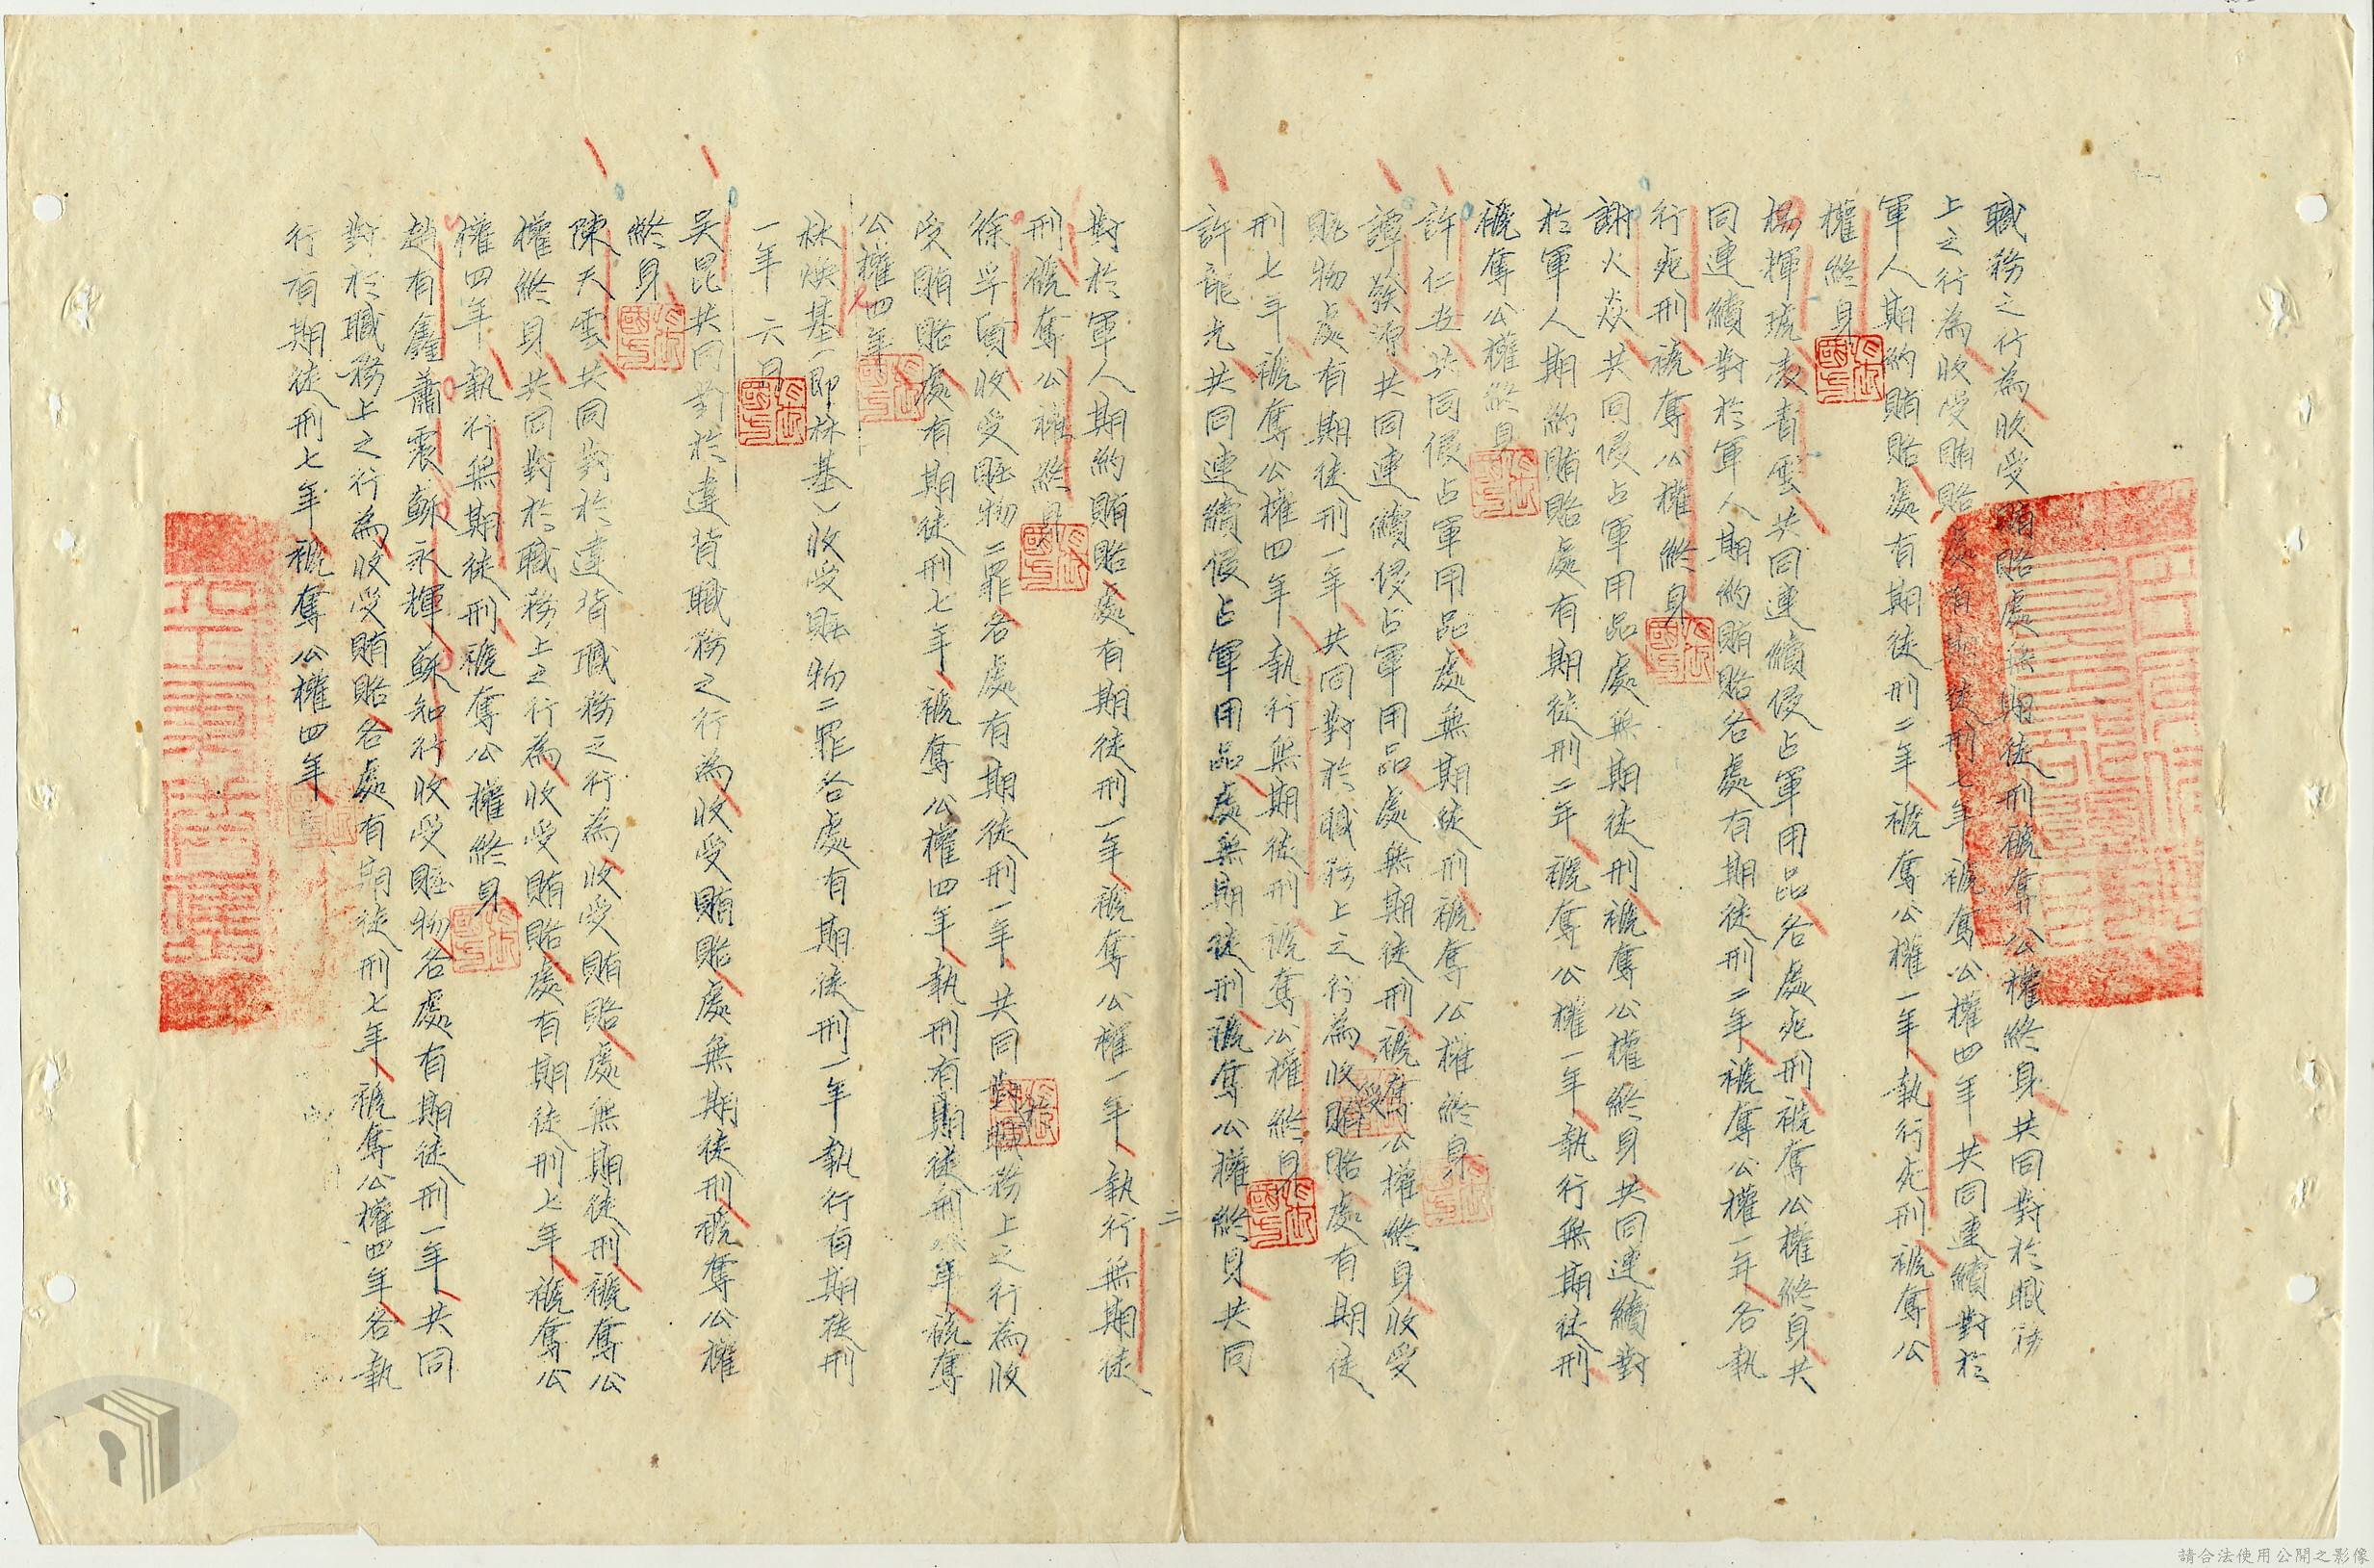 職務之行為收受賄賂處無期徒刑褫奪公權終身共同對於職務
上之行為收受賄賂處有期徒刑七年褫奪公權四年共同連續對於
軍人期約賄賂處有期徒刑二年褫奪公權一年執行死刑褫奪公
權終身
楊揮琥袁青雲共同連續侵占軍用品各處死刑褫奪公權終身共
同連續對於軍人期約賄賂各處有期徒刑二年褫奪公權一年各執
行死刑褫奪公權終身
謝火炎共同侵占軍用品處無期徒刑褫奪公權終身共同連續對
於軍人期約賄賂處有期徒刑二年褫奪公權一年執行無期徒刑
褫奪公權終身
許仁並共同侵占軍用品處無期徒刑褫奪公權終身
譚發源共同連續侵占軍用品處無期徒刑褫奪公權終身收受
贓物處有期徒刑一年共同對於職務上之行為收受賄賂處有期徒
刑七年褫奪公權四年執行無期徒刑褫奪公權終身
許龍光共同連續侵占軍用品處無期徒刑褫奪公權終身共同
二
對於軍人期約賄賂處有期徒刑一年褫奪公權一年執行無期徒
刑褫奪公權終身
徐孚貞收受贓物二罪各處有期徒刑一年共同對於職務上之行為收
受賄賂處有期徒刑七年褫奪公權四年執刑有期徒刑年褫奪
公權四年
林煥基(即林基)收受贓物二罪各處有期徒刑一年執行有期徒刑
一年六月
吳昆共同對於違背職務之行為收受賄賂處無期徒刑褫奪公權
終身
陳天雲共同對於違背職務之行為收受賄賂處無期徒刑褫奪公
權終身共同對於職務上之行為收受賄賂處有期徒刑七年褫奪公
權四年執行無期徒刑褫奪公權終身
趙有鑫蕭震蘇永輝蘇知行收受贓物各處有期徒刑一年共同
對於職務上之行為收受賄賂各處有期徒刑七年褫奪公權四年各執
行有期徒刑七年褫奪公權四年
請合法使用公開之影像